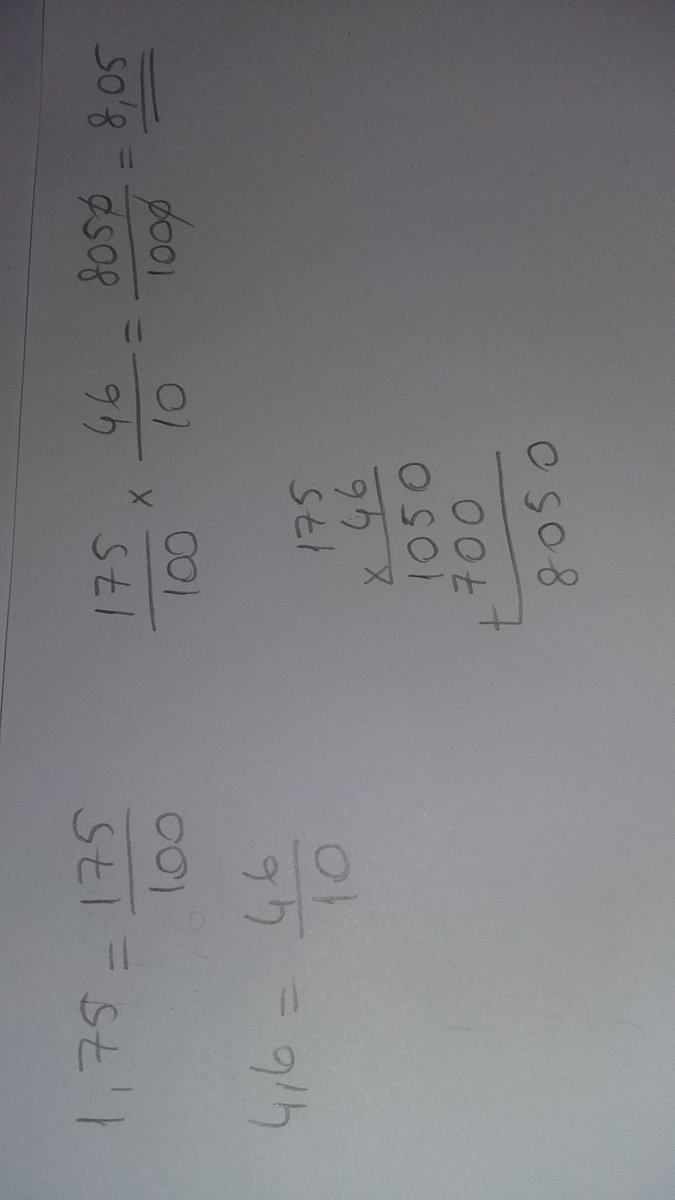 1,75 = 175/100
4,6 = 46/10
175/100 × 46/10 = 8050/1000 = 8,05
175
46 ×
1050
700 +
8050